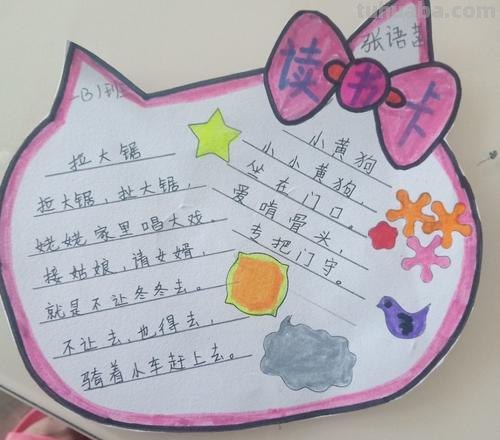 tuhuaba.com
张语
读书卡
一B1班
拉大锯
拉大锯，扯大锯，
姥姥家里唱大戏。
接姑娘，请女婿，
就是不让冬冬去。
不让去，也得去，
骑着小车赶上去。
小黄狗
小小黄狗，
坐在门口。
爱啃骨头，
专把门守。